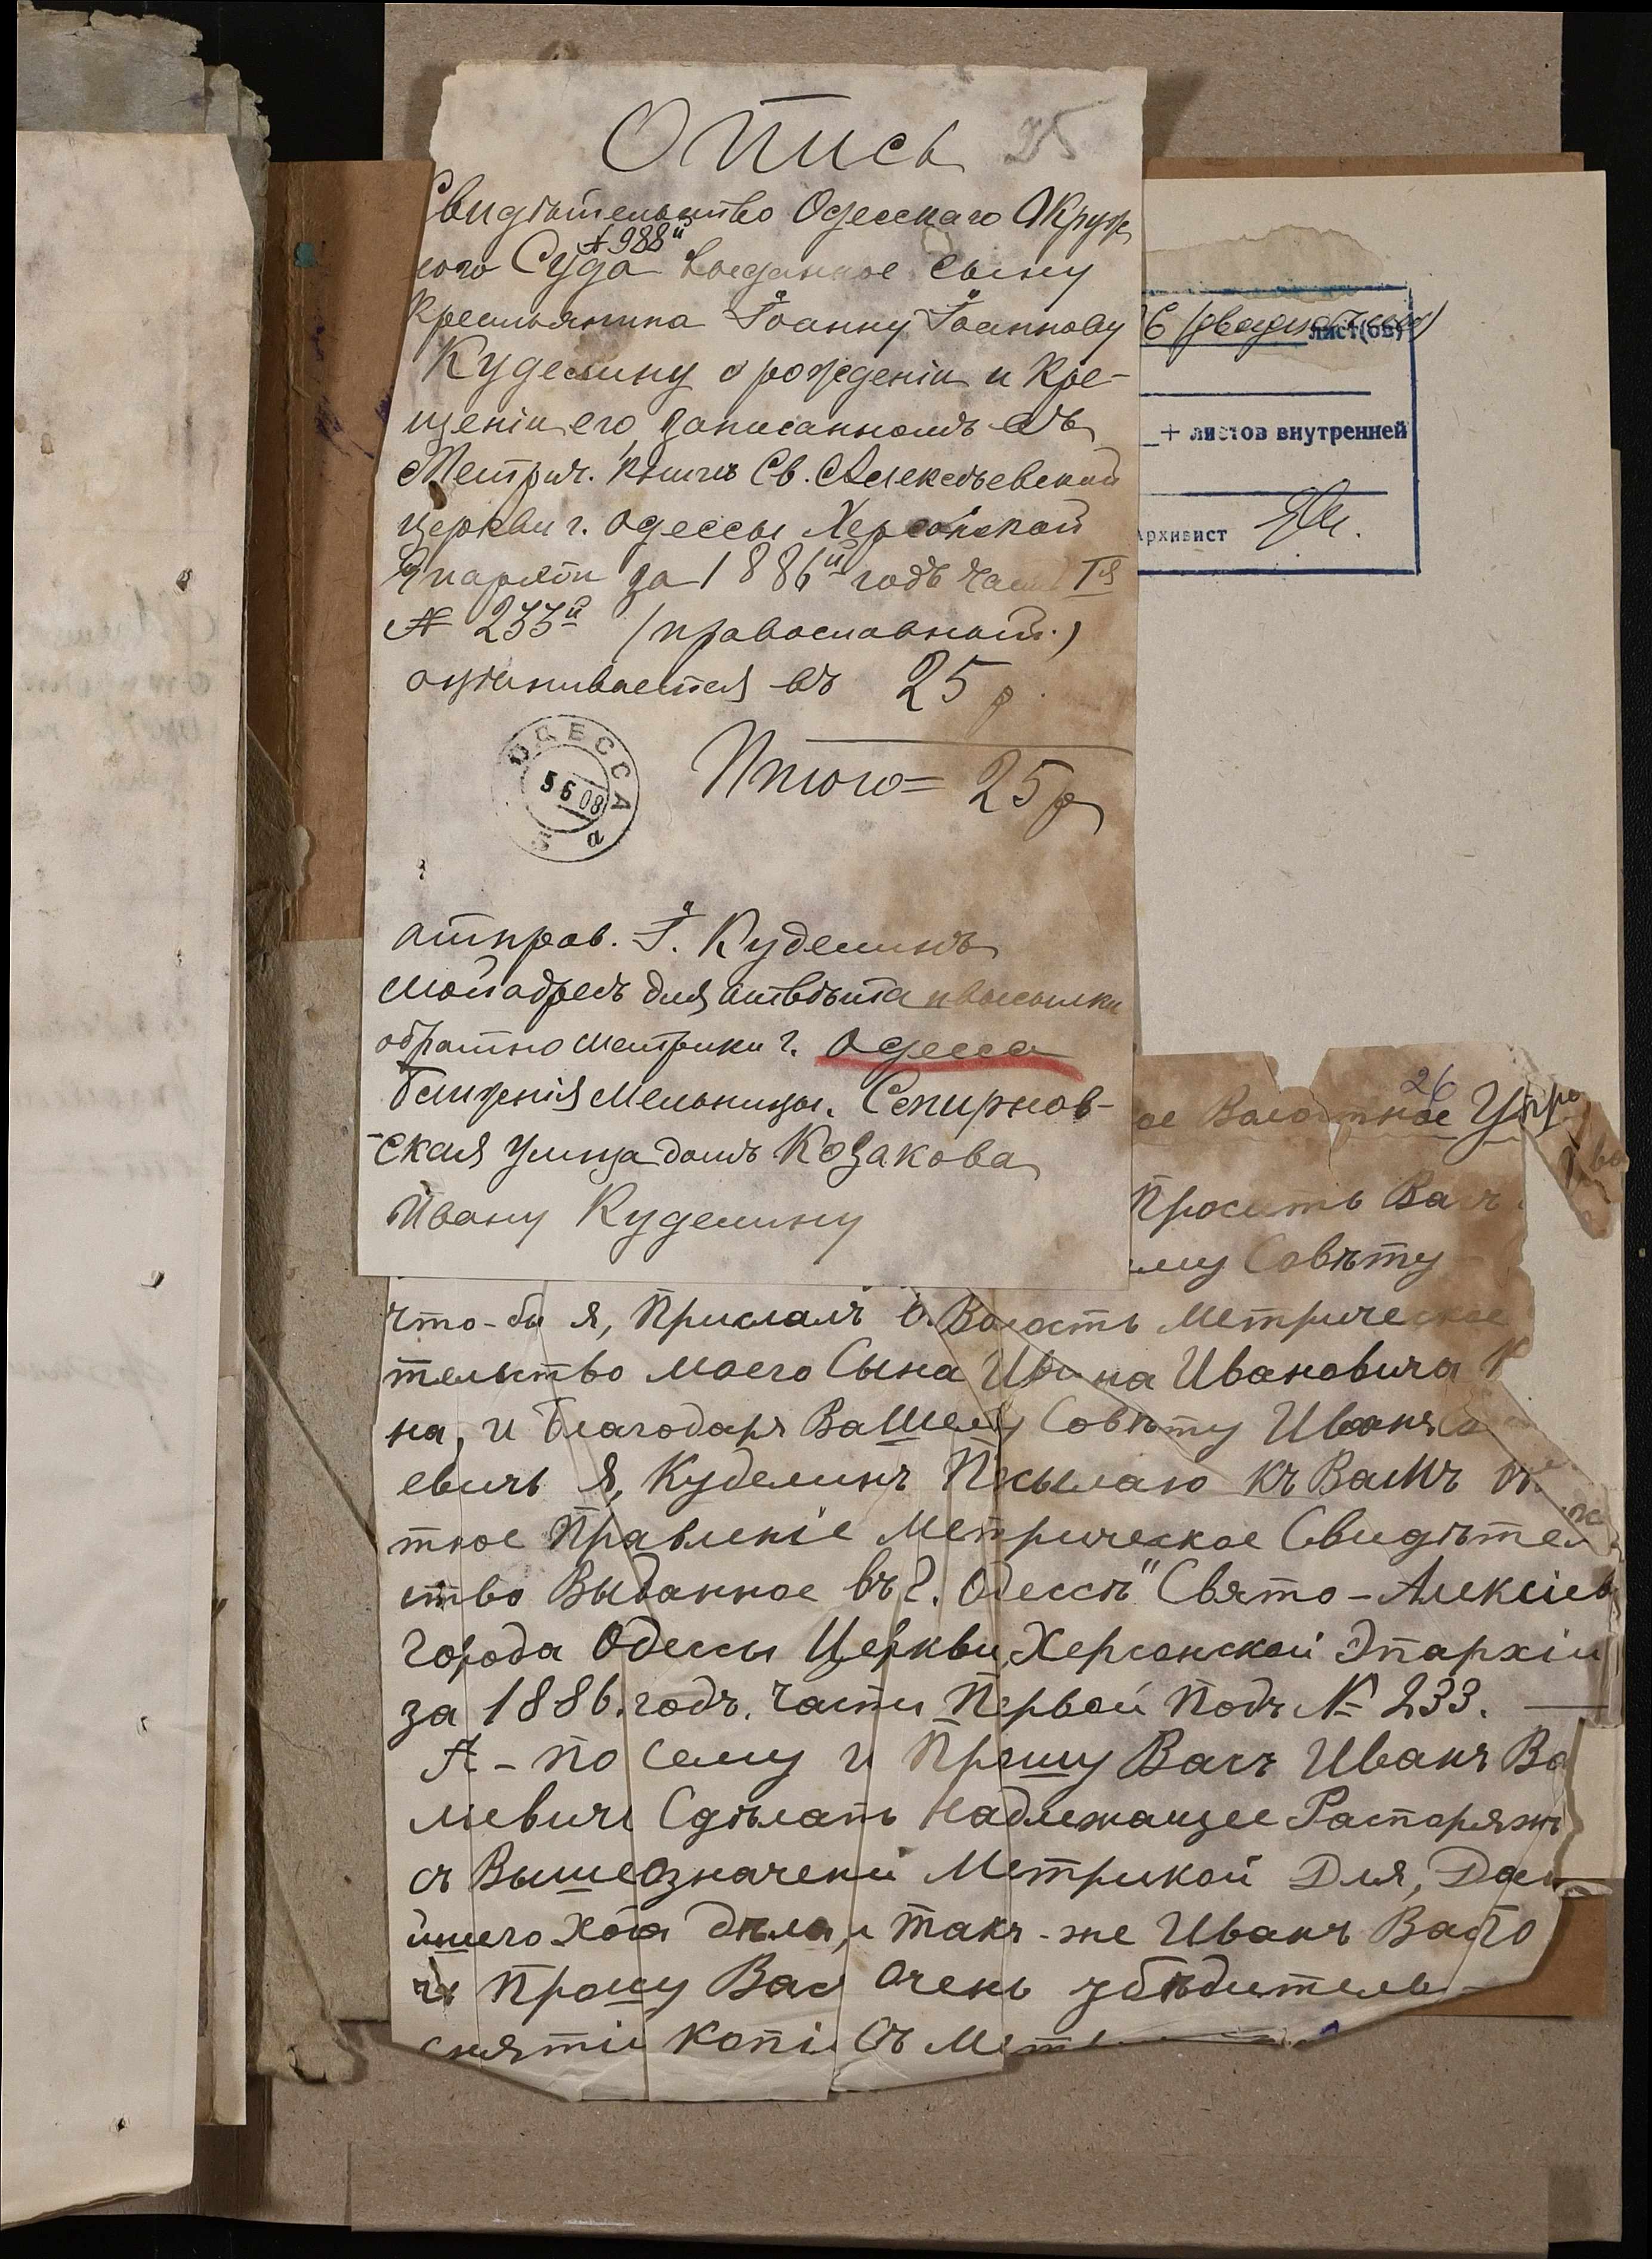 Опись 25
Свидѣтельство Одесскаго Окруж
ного Суда № 988й выданное сыну
Крестьянина Іоанну Іоаннову
Куделину о рожденіи и Кре-
щеніи его, записанномъ въ
Метрич. книгѣ Св. Алексѣевской
церкви г. Одессы Херсонской
Эпархіи за 1886й годъ часть Iя
№ 233й (православный.)
оцѣнивается въ 25 р.
Итого = 25 р
ОДЕССА
5 6 08
5 а
отправ. І. Куделинъ
мой адресъ для отвѣта и высылки
обратно метрики г. Одесса
Ближнія Мельницы. Спирнов-
-ская улица домъ Козакова
Ивану Куделину
6 (двадцать шесть) лист(ов)
+ листов внутренней
Архивист
26
ое Волостное Упра
Просить Васъ
му Совѣту
что-бы я, Прислалъ в. Волость Метрическое
тельство моего Сына Ивана Ивановича К
на, и благодаря Вашему Совѣту Иванъ
евичъ Я, Куделинъ Посылаю къ Вамъ
тное Правленіе Метрическое Свидѣтел
ство Выданное въ г. Одессѣ" Свято-Алексіев
города Одессы Церкви, Херсонской Эпархіи
за 1886. годъ. части Первой Подъ № 233.
А-по сему и Прошу Васъ Иванъ Ва
лиевичъ Сдѣлать Надлежащее Распоряже
съ Вышеозначений Метрикой Для, Дал
йшего Хода дѣла, и такъ-же Иванъ
чъ Прошу Вас Очень убѣдитель-
снятіи копіи Съ Мет